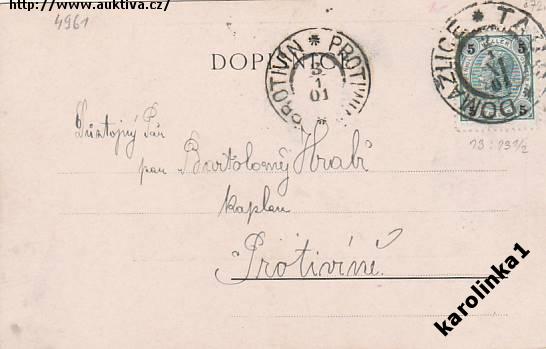 http://www.auktiva.cz/
4961
DOPISNICE
PROTIVIN * PROTIVIN *
3
1
01
DOMAŽLICE * TA
5 5
5
13 : 13 1/2
Důstojný Pán
pan Bartoloměj Hrabě
kaplan
Protivíně
karolinka1